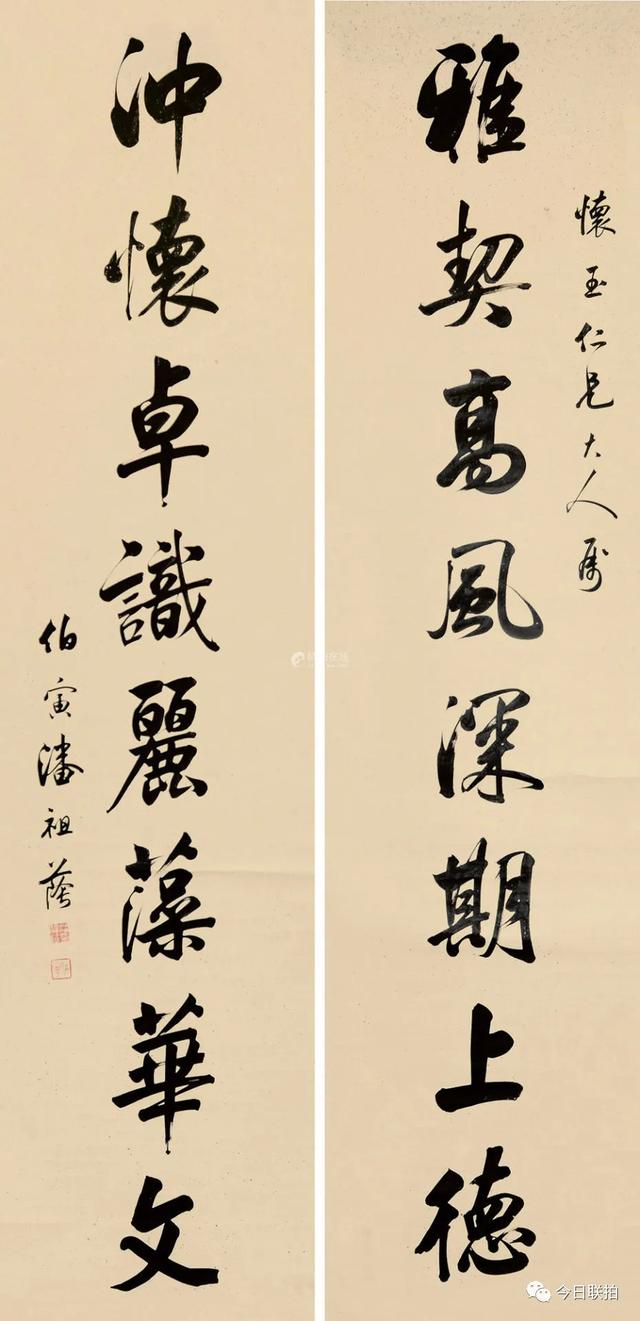 懷玉仁兄大人属
雅契高風深期上德
沖懷卓識麗藻華文
伯寅潘祖蔭
今日联拍